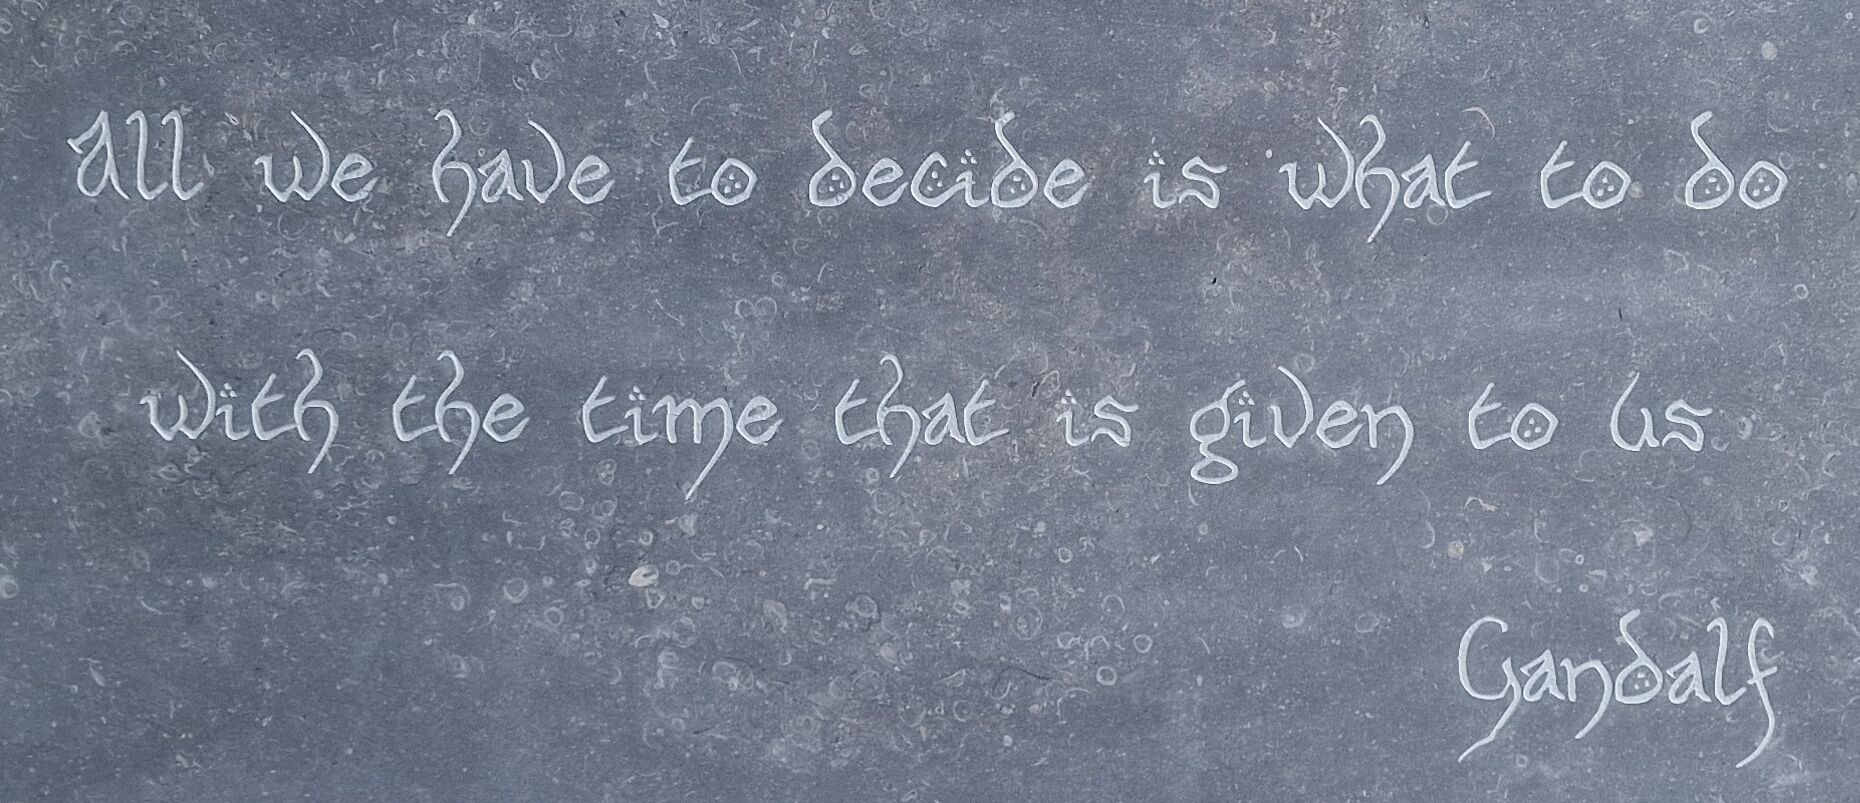 All we have to decide is what to do
with the time that is given to us
Gandalf